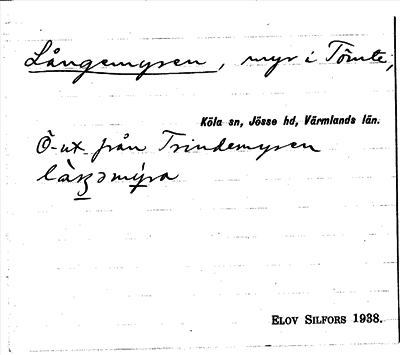 Långemyren, myr i Tômte,
Köla sn, Jösse hd, Värmlands län.
Ö-ut från Trindemyren
ELOV SILFORS 1938.